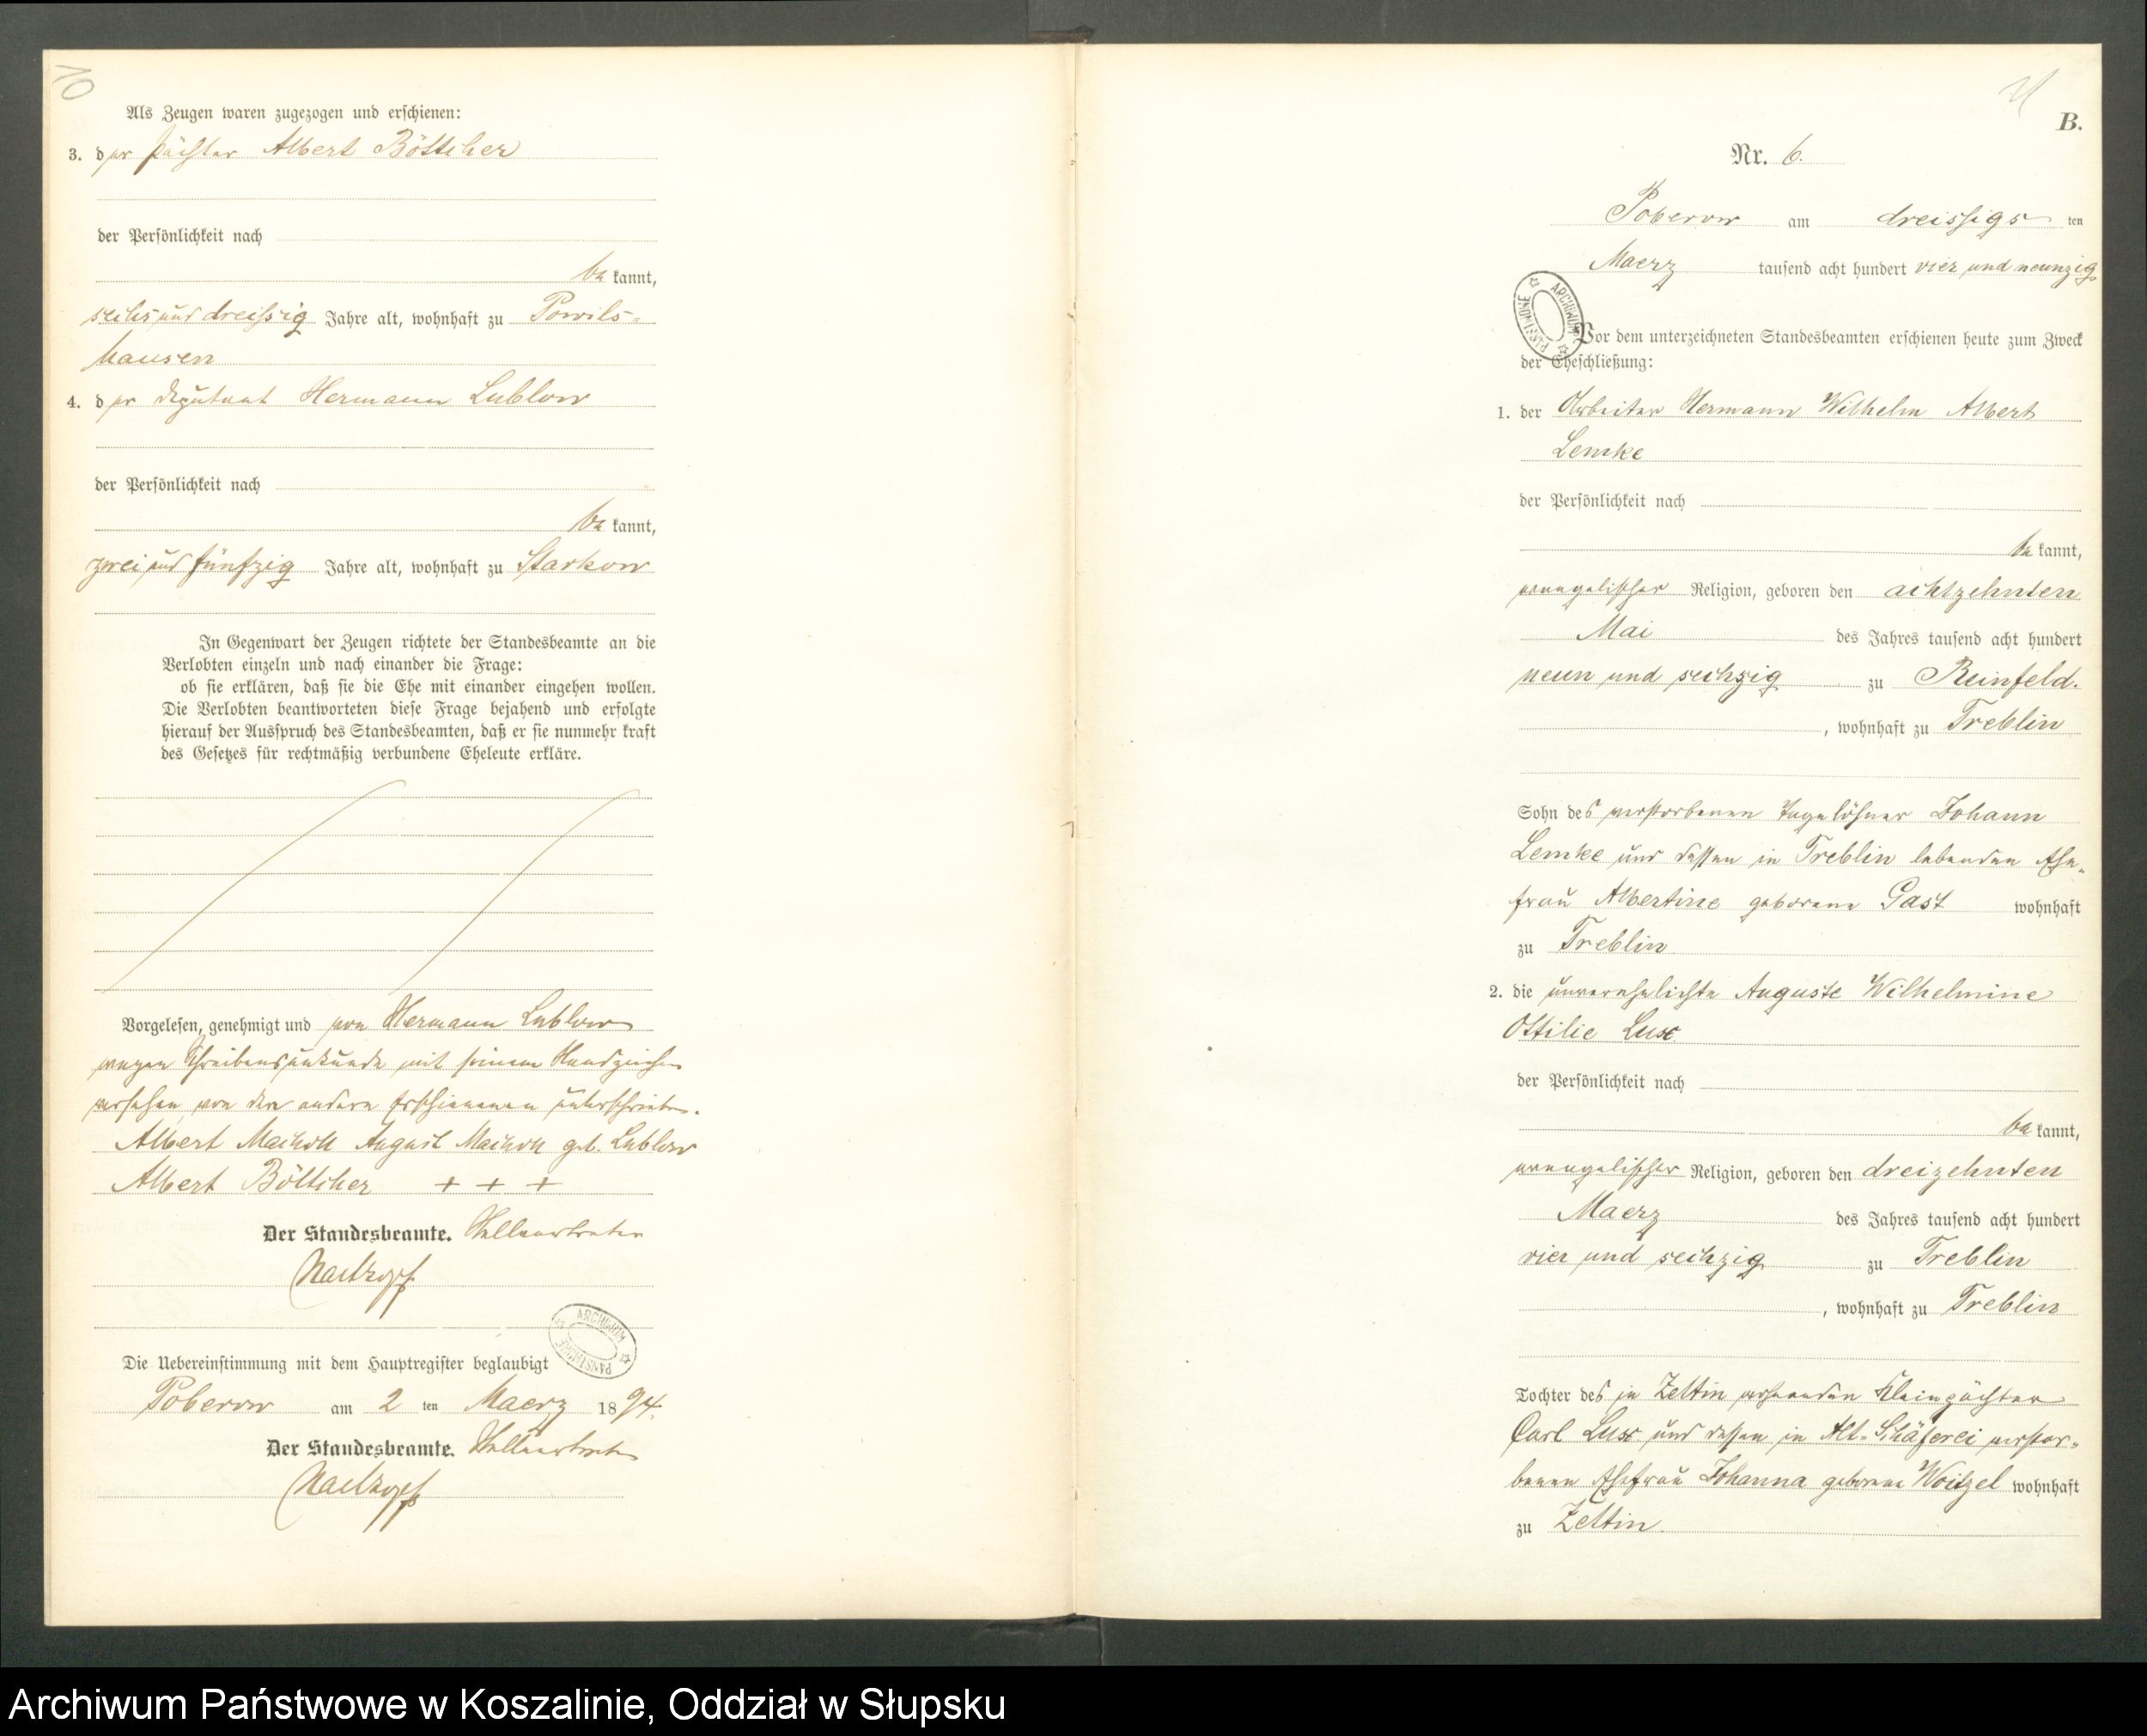 10
Als Zeugen waren zugezogen und erschienen:
3. der Pächter Albert Böttcher
der Persönlichkeit nach
be kannt,
sechs und dreißig Jahre alt, wohnhaft zu Powils-
hausen
4. der Deputant Hermann Lublow
der Persönlichkeit nach
be kannt,
zwei und fünfzig Jahre alt, wohnhaft zu Starkow
In Gegenwart der Zeugen richtete der Standesbeamte an die
Verlobten einzeln und nach einander die Frage:
ob sie erklären, daß sie die Ehe mit einander eingehen wollen.
Die Verlobten beantworteten diese Frage bejahend und erfolgte
hierauf der Ausspruch des Standesbeamten, daß er sie nunmehr kraft
des Gesetzes für rechtmäßig verbundene Eheleute erkläre.
Vorgelesen, genehmigt und von Hermann Lublow
wegen Schreibensunkunde mit seinem Handzeichen
versehen von den andern Erschienenen unterschrieben.
Albert August geb. Lublow
Albert Böttcher + + +
Der Standesbeamte. Stellvertreter
ARCHIWUM PAŃSTWOWE
Die Uebereinstimmung mit dem Hauptregister beglaubigt
Poberow am 2 ten Maerz 1894.
Der Standesbeamte. Stellvertreter
11
B.
Nr. 6.
Poberow am dreissigs ten
Maerz tausend acht hundert vier und neunzig
ARCHIWUM PAŃSTWOWE
Vor dem unterzeichneten Standesbeamten erschienen heute zum Zweck
der Eheschließung:
1. der Arbeiter Hermann Wilhelm Albert
Lemke
der Persönlichkeit nach
be kannt,
evangelischer Religion, geboren den achtzehnten
Mai des Jahres tausend acht hundert
neun und sechzig zu Reinfeld.
, wohnhaft zu Treblin
Sohn des verstorbenen Tagelöhner Johann
Lemke und dessen in Treblin lebenden Ehe-
frau Albertine geborene Gast wohnhaft
zu Treblin
2. die unverehelichte Auguste Wilhelmine
Ottilie Lux
der Persönlichkeit nach
be kannt,
evangelischer Religion, geboren den dreizehnten
Maerz des Jahres tausend acht hundert
vier und sechzig zu Treblin
, wohnhaft zu Treblin
Tochter des in Zettin wohnenden Kleinpächter
Carl Lux und dessen in Alt-Schäferei verstor-
benen Ehefrau Johanna geborene Woitzel wohnhaft
zu Zettin.
Archiwum Państwowe w Koszalinie, Oddział w Słupsku